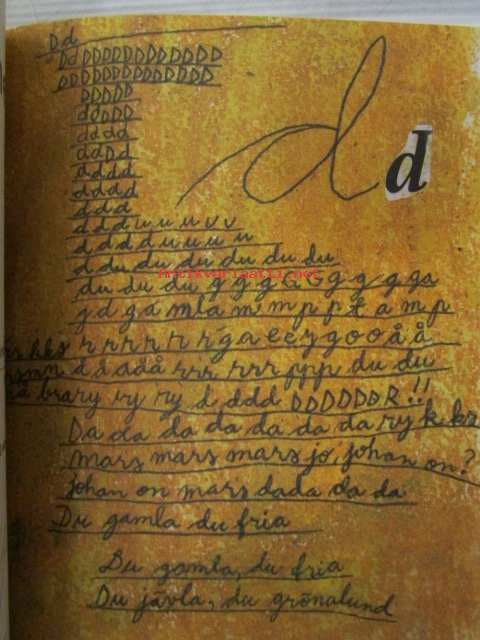 Dd
DdDDDDDDDDDDDD
DDDDDDDDDDDDDD
DDDDD
d
ddDDD
dddd
ddDd
d
dddd
dddd
ddd
ddduuuvv
dddduuuu
d du du du du du du
Antikvariaatti.net
du du du g g g G G g g g ga
gd ga mla m m p p t a m p
r r r r r r g a e c y g o o å å
d å å å å rrr rrr ppp du du
brary ry ry d ddd DDDDDDR!!
Da da da da da da da ry k
mars mars mars jo, johan on?
Johan on mars dada da da
Du gamla du fria
Du gamla, du fria
Du jävla, du grönalund